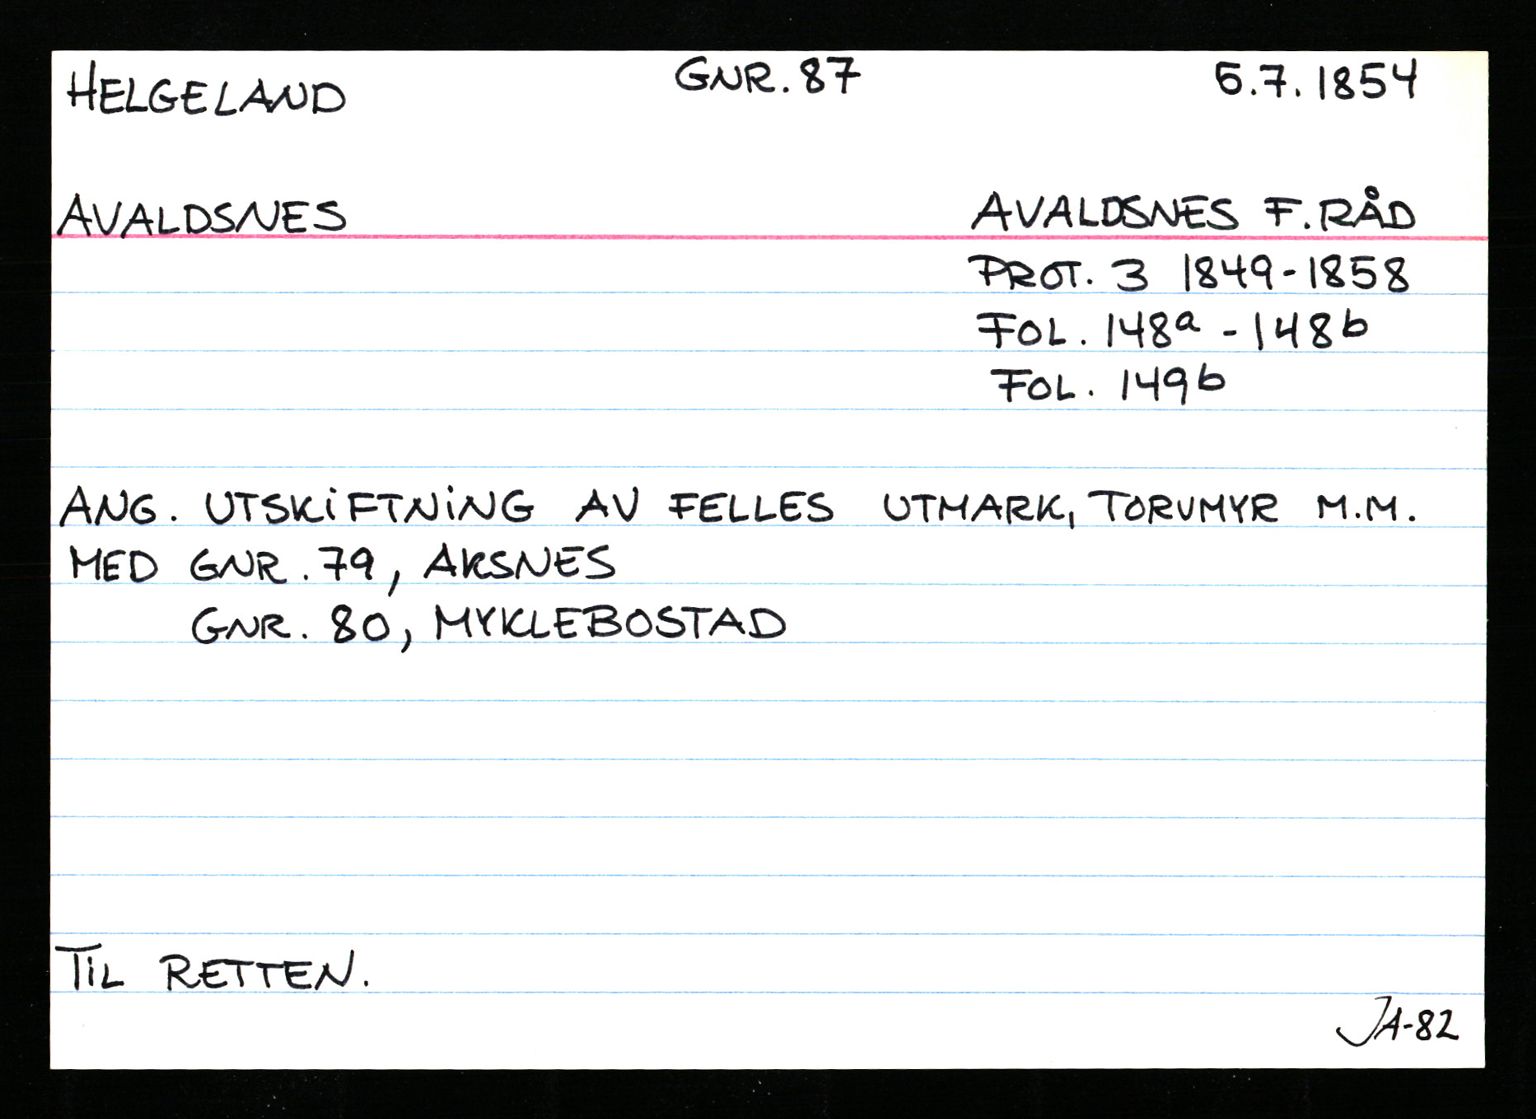 HELGELAND GNR. 87 5.7.1854
AVALDSNES AVALDSNES F.RÅD
PROT. 3 1849-1858
FOL. 148a - 148b
FOL. 149b
ANG. UTSKIFTNING AV FELLES UTMARK, TORVMYR M.M.
MED GNR. 79, AKSNES
GNR. 80, MYKLEBOSTAD
TIL RETTEN.
JA-82